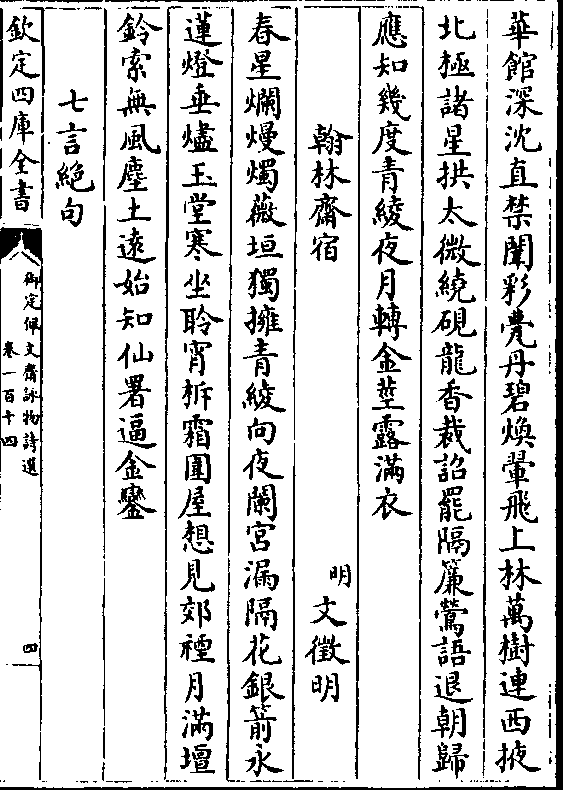 華館深沈直禁闈彩甍丹碧煥翬飛上林萬樹連西掖
北極諸星拱太微繞硯龍香裁詔罷隔簾鶯語退朝歸
應知幾度青綾夜月轉金莖露滿衣
翰林齋宿
明文徵明
春星爛熳燭薇垣獨擁青綾向夜闌宮漏隔花銀箭永
蓮燈垂燼玉堂寒坐聆宵柝霜圍屋想見郊禋月滿壇
鈴索無風塵土遠始知仙署逼金鑾
七言絶句
欽定四庫全書
御定佩文齋詠物詩選
卷一百十四
四